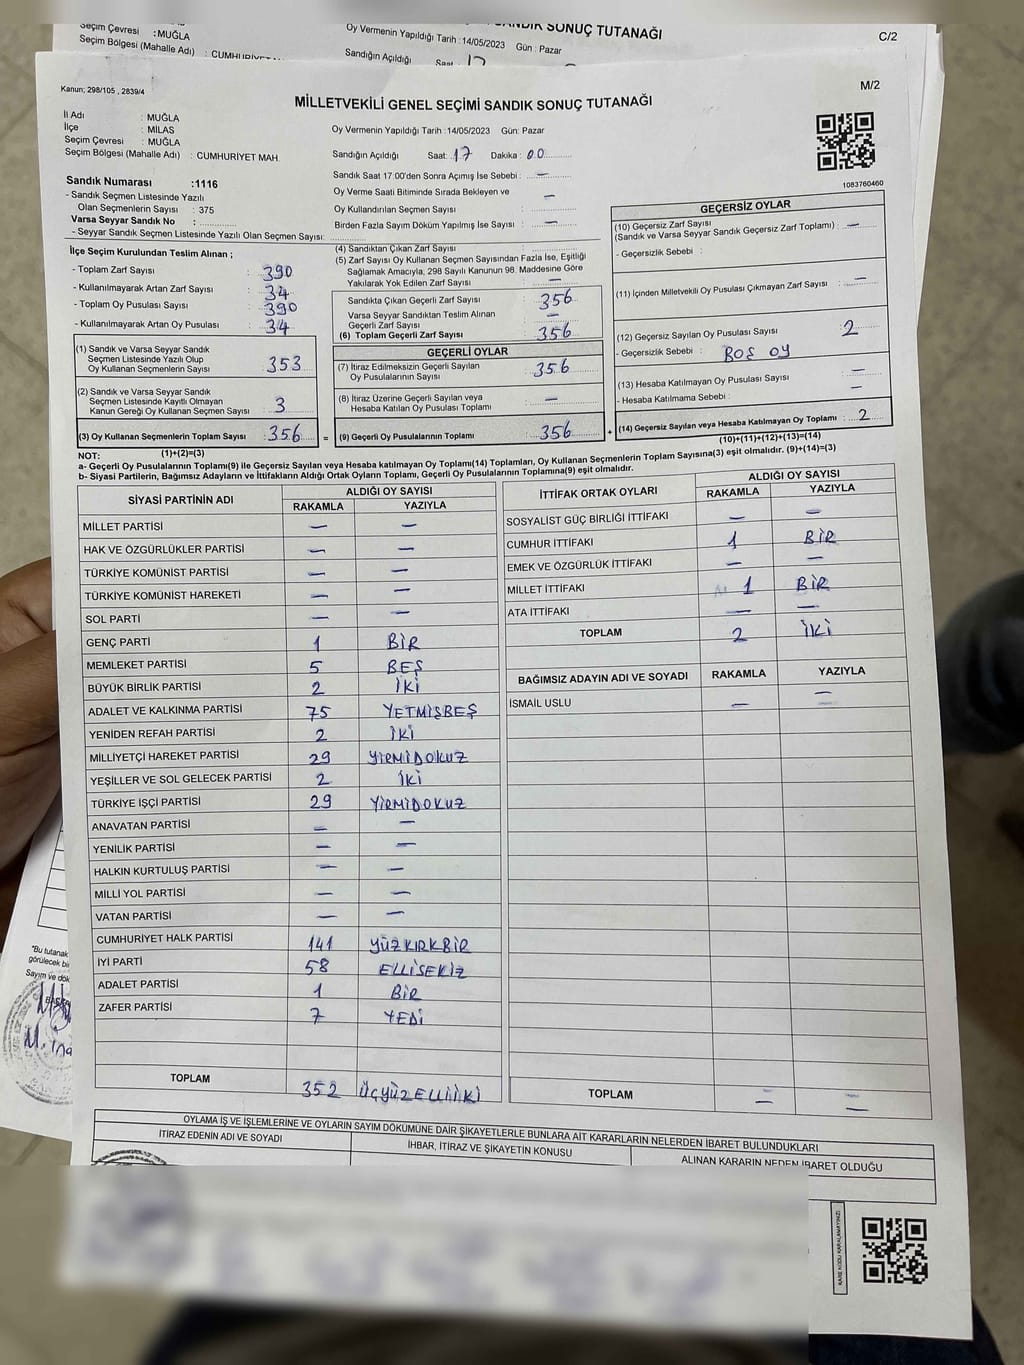 Seçim Çevresi : MUĞLA
Seçim Bölgesi (Mahalle Adı) : CUMHURİYET
Oy Vermenin Yapıldığı Tarih : 14/05/2023 Gün : Pazar
Sandığın Açıldığı Saat 17
SANDIK SONUÇ TUTANAĞI
C/2
Kanun; 298/105 , 2839/4
M/2
MİLLETVEKİLİ GENEL SEÇİMİ SANDIK SONUÇ TUTANAĞI
İl Adı : MUĞLA
İlçe : MİLAS
Seçim Çevresi : MUĞLA
Seçim Bölgesi (Mahalle Adı) : CUMHURİYET MAH.
Sandık Numarası :1116
- Sandık Seçmen Listesinde Yazılı
Olan Seçmenlerin Sayısı : 375
Varsa Seyyar Sandık No :
- Seyyar Sandık Seçmen Listesinde Yazılı Olan Seçmen Sayısı:
Oy Vermenin Yapıldığı Tarih : 14/05/2023 Gün: Pazar
Sandığın Açıldığı Saat: 17 Dakika : 00
Sandık Saat 17:00'den Sonra Açımış İse Sebebi : —
Oy Verme Saati Bitiminde Sırada Bekleyen ve
Oy Kullandırılan Seçmen Sayısı : —
Birden Fazla Sayım Döküm Yapılmış İse Sayısı : —
1083760460
İlçe Seçim Kurulundan Teslim Alınan ;
- Toplam Zarf Sayısı : 390
- Kullanılmayarak Artan Zarf Sayısı : 34
- Toplam Oy Pusulası Sayısı : 390
- Kullanılmayarak Artan Oy Pusulası : 34
(1) Sandık ve Varsa Seyyar Sandık
Seçmen Listesinde Yazılı Olup
Oy Kullanan Seçmenlerin Sayısı : 353
(2) Sandık ve Varsa Seyyar Sandık
Seçmen Listesinde Kayıtlı Olmayan
Kanun Gereği Oy Kullanan Seçmen Sayısı : 3
(3) Oy Kullanan Seçmenlerin Toplam Sayısı : 356
(1)+(2)=(3)
(4) Sandıktan Çıkan Zarf Sayısı :
(5) Zarf Sayısı Oy Kullanan Seçmen Sayısından Fazla İse, Eşitliği
Sağlamak Amacıyla, 298 Sayılı Kanunun 98. Maddesine Göre
Yakılarak Yok Edilen Zarf Sayısı : —
Sandıkta Çıkan Geçerli Zarf Sayısı : 356
Varsa Seyyar Sandıktan Teslim Alınan
Geçerli Zarf Sayısı : —
(6) Toplam Geçerli Zarf Sayısı : 356
GEÇERLİ OYLAR
(7) İtiraz Edilmeksizin Geçerli Sayılan
Oy Pusulalarının Sayısı : 356
(8) İtiraz Üzerine Geçerli Sayılan veya
Hesaba Katılan Oy Pusulası Toplamı : —
= (9) Geçerli Oy Pusulalarının Toplamı : 356 +
GEÇERSİZ OYLAR
(10) Geçersiz Zarf Sayısı
(Sandık ve Varsa Seyyar Sandık Geçersiz Zarf Toplamı) : —
- Geçersizlik Sebebi :
(11) İçinden Milletvekili Oy Pusulası Çıkmayan Zarf Sayısı : —
(12) Geçersiz Sayılan Oy Pusulası Sayısı : 2
- Geçersizlik Sebebi : BOŞ OY
(13) Hesaba Katılmayan Oy Pusulası Sayısı : —
- Hesaba Katılmama Sebebi : —
(14) Geçersiz Sayılan veya Hesaba Katılmayan Oy Toplamı : 2
(10)+(11)+(12)+(13)=(14)
NOT:
a- Geçerli Oy Pusulalarının Toplamı(9) ile Geçersiz Sayılan veya Hesaba katılmayan Oy Toplamı(14) Toplamları, Oy Kullanan Seçmenlerin Toplam Sayısına(3) eşit olmalıdır. (9)+(14)=(3)
b- Siyasi Partilerin, Bağımsız Adayların ve İttifakların Aldığı Ortak Oyların Toplamı, Geçerli Oy Pusulalarının Toplamına(9) eşit olmalıdır.
SİYASİ PARTİNİN ADI ALDIĞI OY SAYISI
RAKAMLA YAZIYLA
MİLLET PARTİSİ — —
HAK VE ÖZGÜRLÜKLER PARTİSİ — —
TÜRKİYE KOMÜNİST PARTİSİ — —
TÜRKİYE KOMÜNİST HAREKETİ — —
SOL PARTİ — —
GENÇ PARTİ 1 BİR
MEMLEKET PARTİSİ 5 BEŞ
BÜYÜK BİRLİK PARTİSİ 2 İKİ
ADALET VE KALKINMA PARTİSİ 75 YETMİŞBEŞ
YENİDEN REFAH PARTİSİ 2 İKİ
MİLLİYETÇİ HAREKET PARTİSİ 29 YİRMİDOKUZ
YEŞİLLER VE SOL GELECEK PARTİSİ 2 İKİ
TÜRKİYE İŞÇİ PARTİSİ 29 YİRMİDOKUZ
ANAVATAN PARTİSİ — —
YENİLİK PARTİSİ — —
HALKIN KURTULUŞ PARTİSİ — —
MİLLİ YOL PARTİSİ — —
VATAN PARTİSİ — —
CUMHURİYET HALK PARTİSİ 141 YÜZKIRKBİR
İYİ PARTİ 58 ELLİSEKİZ
ADALET PARTİSİ 1 BİR
ZAFER PARTİSİ 7 YEDİ
TOPLAM 352 ÜÇYÜZELLİİKİ
İTTİFAK ORTAK OYLARI ALDIĞI OY SAYISI
RAKAMLA YAZIYLA
SOSYALİST GÜÇ BİRLİĞİ İTTİFAKI — —
CUMHUR İTTİFAKI 1 BİR
EMEK VE ÖZGÜRLÜK İTTİFAKI — —
MİLLET İTTİFAKI 1 BİR
ATA İTTİFAKI — —
TOPLAM 2 İKİ
BAĞIMSIZ ADAYIN ADI VE SOYADI RAKAMLA YAZIYLA
İSMAİL USLU — —
TOPLAM = =
OYLAMA İŞ VE İŞLEMLERİNE VE OYLARIN SAYIM DÖKÜMÜNE DAİR ŞİKAYETLERLE BUNLARA AİT KARARLARIN NELERDEN İBARET BULUNDUKLARI
İTİRAZ EDENİN ADI VE SOYADI İHBAR, İTİRAZ VE ŞİKAYETİN KONUSU ALINAN KARARIN NEDEN İBARET OLDUĞU
"Bu tutanak
görülecek
Sayım ve
KARE KODU KARALAMAYINIZ!